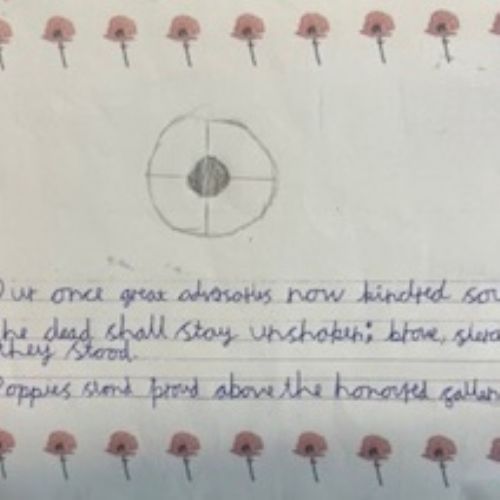 Our once great advosaties now kindred sou
he dead shall stay unshaken; brave,
they stood.
Poppies stond proud above the honoured